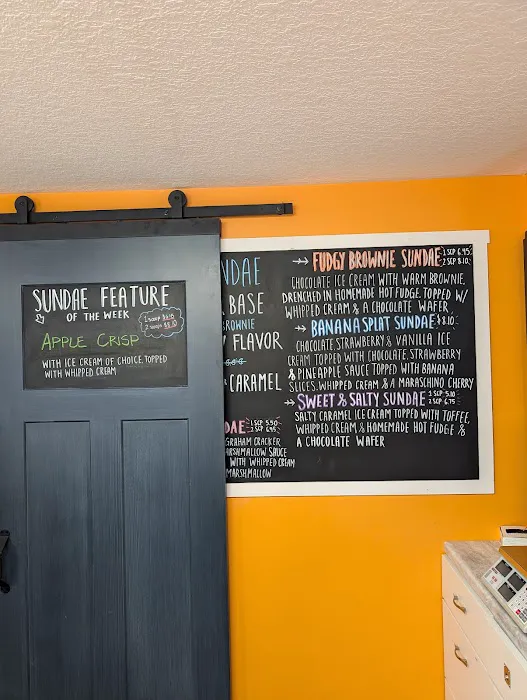 SUNDAE FEATURE
OF THE WEEK
APPLE CRISP
WITH ICE CREAM OF CHOICE, TOPPED
WITH WHIPPED CREAM
NDAE
BASE
BROWNIE
FLAVOR
CARAMEL
DAE 1 SCP 5.50
2 SCP 6.95
GRAHAM CRACKER
MARSHMALLOW SAUCE
WITH WHIPPED CREAM
MARSHMALLOW
FUDGY BROWNIE SUNDAE 1 SCP 6.95
2 SCP 8.10
CHOCOLATE ICE CREAM WITH WARM BROWNIE,
DRENCHED IN HOMEMADE HOT FUDGE, TOPPED W/
WHIPPED CREAM & A CHOCOLATE WAFER
BANANA SPLIT SUNDAE $8.10
CHOCOLATE, STRAWBERRY & VANILLA ICE
CREAM TOPPED WITH CHOCOLATE, STRAWBERRY
& PINEAPPLE SAUCE TOPPED WITH BANANA
SLICES, WHIPPED CREAM & A MARASCHINO CHERRY
SWEET & SALTY SUNDAE 1 SCP 5.10
2 SCP 6.75
SALTY CARAMEL ICE CREAM TOPPED WITH TOFFEE,
WHIPPED CREAM, & HOMEMADE HOT FUDGE &
A CHOCOLATE WAFER